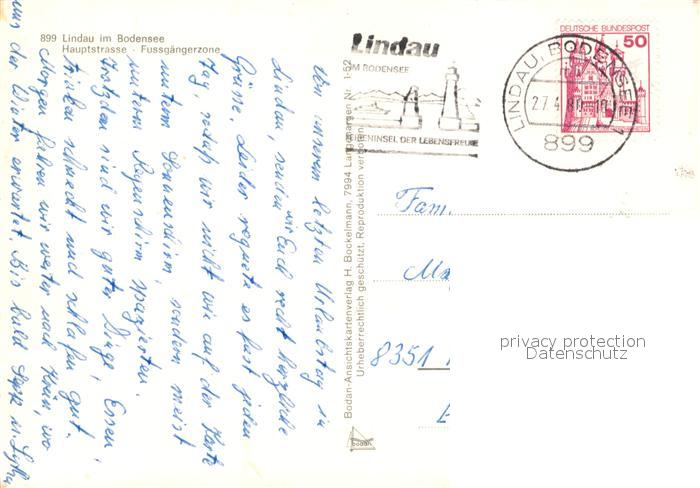 899 Lindau im Bodensee
Hauptstrasse - Fussgängerzone
Lindau
IM BODENSEE
DIE FERIENINSEL DER LEBENSFREUDE
LINDAU, BODENSEE
27.4.80.-10
899
DEUTSCHE BUNDESPOST
50
Von unserem letzten Urlaubstag in
Lindau senden wir Euch recht herzliche
Grüße. Leider regnete es fast jeden
Tag, sodaß wir nicht wie auf der Karte
unterm Sonnenschirm, sondern meist
unterm Regenschirm spazierten.
Trotzdem sind wir guter Dinge, Essen,
trinken schmeckt und schlafen gut.
Morgen fahren wir weiter nach, wo
uns der Winter erwartet. Bis bald
Bodan-Ansichtskartenverlag H. Bockelmann, 7994 Langenargen Nr. 1-52
Urheberrechtlich geschützt. Reproduktion verboten.
bodan
Fam.
Ma
8351
privacy protection
Datenschutz